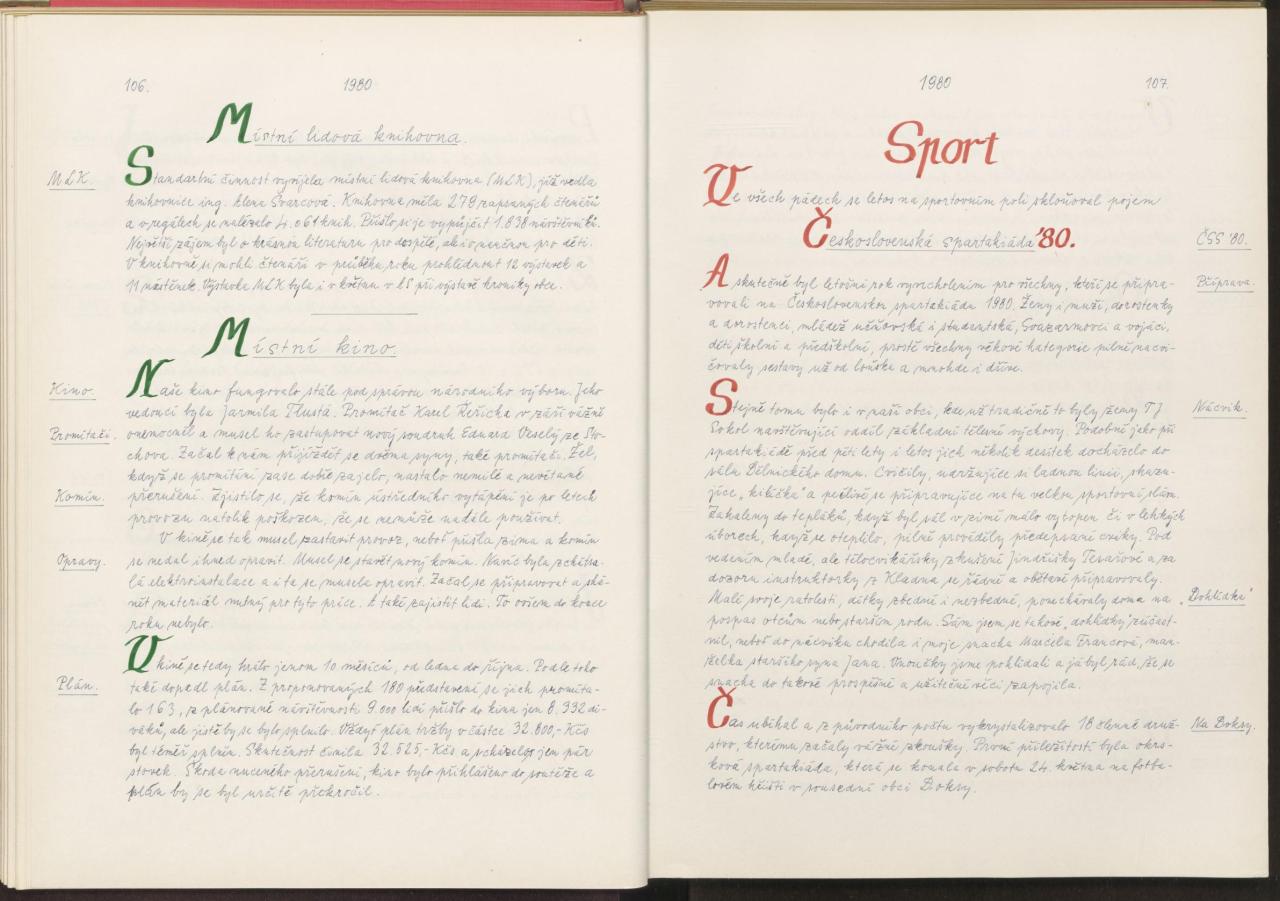 106.
1980
Místní lidová knihovna.
MLK.
Standartní činnost vyvíjela místní lidová knihovna (MLK), již vedla
knihovnice ing. Alena Švarcová. Knihovna měla 279 zapsaných čtenářů
a v regálech se nalézalo 4.061 knih. Přišlo si je vypůjčit 1.838 návštěvníků.
Největší zájem byl o krásnou literaturu pro dospělé, ale i o naučnou pro děti.
V knihovně si mohli čtenáři v průběhu roku prohlédnout 12 výstavek a
11 nástěnek. Výstavka MLK byla i v květnu v KS při výstavě kroniky obce.
Místní kino.
Kino.
Naše kino fungovalo stále pod správou národního výboru. Jeho
vedoucí byla Jarmila Tlustá. Promítač Karel Řeřicha v září vážně
Promítači.
onemocněl a musel ho zastupovat nový soudruh Eduard Veselý ze Sto-
chova. Začal k nám přijíždět se dvěma syny, také promítači. Žel,
když se promítání zase dobře zajelo, nastalo nemilé a nevítané
Komín.
přerušení. Zjistilo se, že komín ústředního vytápění je po letech
provozu natolik poškozen, že se nemůže nadále používat.
V kině se tak musel zastavit provoz, neboť přišla zima a komín
Opravy.
se nedal ihned opravit. Musel se stavět nový komín. Navíc byla zchátra-
lá elektroinstalace a i ta se musela opravit. Začal se připravovat a shá-
nět materiál nutný pro tyto práce. A také zajistit lidi. To ovšem do konce
roku nebylo.
V kině se tedy hrálo jenom 10 měsíců, od ledna do října. Podle toho
Plán.
také dopadl plán. Z proponovaných 180 představení se jich promíta-
lo 163, z plánované návštěvnosti 9.000 lidí přišlo do kina jen 8.392 di-
váků, ale jistě by se bylo splnilo. Vždyť plán tržby v částce 32.800,- Kčs
byl téměř splněn. Skutečnost činila 32.525,- Kčs a scházelo jen pár
stovek. Škoda nuceného přerušení, kino bylo přihlášeno do soutěže a
plán by se byl určitě překročil.
1980
107.
Sport
Ve všech pádech se letos na sportovním poli skloňoval pojem
Československá spartakiáda '80.
ČSS '80.
A skutečně byl letošní rok vyvrcholením pro všechny, kteří se připra-
Příprava.
vovali na Československou spartakiádu 1980. Ženy i muži, dorostenky
a dorostenci, mládež učňovská i studentská, Svazarmovci a vojáci,
děti školní a předškolní, prostě všechny věkové kategorie pilně nacvi-
čovaly sestavy už od loňska a mnohde i dříve.
Stejně tomu bylo i v naší obci, kde už tradičně to byly ženy TJ
Nácvik.
Sokol navštěvující oddíl základní tělesné výchovy. Podobně jako při
spartakiádě před pěti lety i letos jich několik desítek docházelo do
sálu Dělnického domu. Cvičily, udržujíce si ladnou linii, shazu-
jíce „kilíčka" a pečlivě se připravujíce na tu velkou sportovní slávu.
Zahaleny do tepláků, když byl sál v zimě málo vytopen či v lehkých
úborech, když se oteplilo, pilně prováděly předepsané cviky. Pod
vedením mladé, ale tělocvikářsky zkušené Jindřišky Tesařové a za
dozoru instruktorky z Kladna se řádně a obětavě připravovaly.
Malé svoje ratolesti, dítky zbedné i nezbedné, ponechávaly doma na
„Dohlídka"
pospas otcům nebo starším rodu. Sám jsem se takové „dohlídky zúčast-
nil, neboť do nácviku chodila i moje snacha Marcela Francová, man-
želka staršího syna Jana. Vnoučky jsme pohlídali a já byl rád, že se
snacha do takové prospěšné a užitečné věci zapojila.
Čas ubíhal a z původního počtu vykrystalizovalo 18 členné druž-
Na Doksy.
stvo, kterému začaly vážné zkoušky. První příležitostí byla okrs-
ková spartakiáda, která se konala v sobotu 24. května na fotba-
lovém hřišti v sousední obci Doksy.